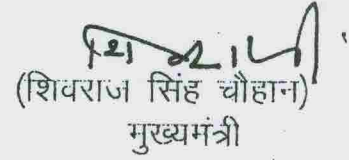 (शिवराज सिंह चौहान)
मुख्यमंत्री